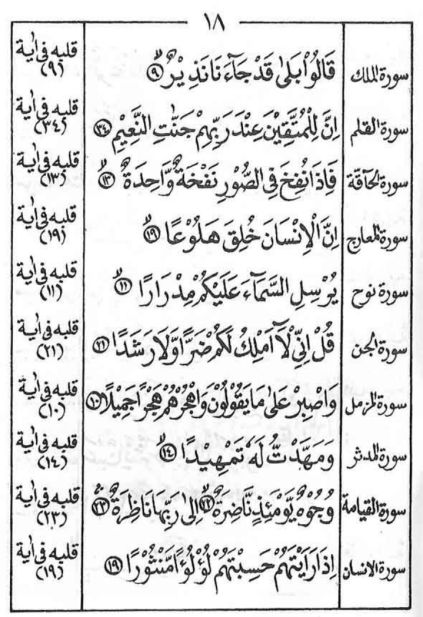 ١٨
سورة الملك قَالُوْا بَلٰى قَدْ جَآءَ نَا نَذِيْرٌ ٩ قلبه فی أية (٩)
سورة القلم اِنَّ لِلْمُتَّقِيْنَ عِنْدَ رَبِّهِمْ جَنّٰتِ النَّعِيْمِ ٣٤ قلبه فی أية (٣٤)
سورة الحاقة فَاِذَا نُفِخَ فِی الصُّوْرِ نَفْخَةٌ وَّاحِدَةٌ ١٣ قلبه فی أية (١٣)
سورة المعارج اِنَّ الْاِنْسَانَ خُلِقَ هَلُوْعًا ١٩ قلبه فی أية (١٩)
سورة نوح يُرْسِلِ السَّمَآءَ عَلَيْكُمْ مِدْرَارًا ١١ قلبه فی أية (١١)
سورة الجن قُلْ اِنِّیْ لَآ اَمْلِكُ لَكُمْ ضَرًّا وَّلَا رَشَدًا ٢١ قلبه فی أية (٢١)
سورة المزمل وَاصْبِرْ عَلٰى مَا يَقُوْلُوْنَ وَاهْجُرْهُمْ هَجْرًا جَمِيْلًا ١٠ قلبه فی أية (١٠)
سورة المدثر وَمَهَّدْتُّ لَهٗ تَمْهِيْدًا ١٤ قلبه فی أية (١٤)
سورة القيامة وُجُوْهٌ يَّوْمَئِذٍ نَّاضِرَةٌ ٢٢ اِلٰى رَبِّهَا نَاظِرَةٌ ٢٣ قلبه فی أية (٢٣)
سورة الانسان اِذَا رَاَيْتَهُمْ حَسِبْتَهُمْ لُؤْلُؤًا مَّنْثُوْرًا ١٩ قلبه فی أية (١٩)